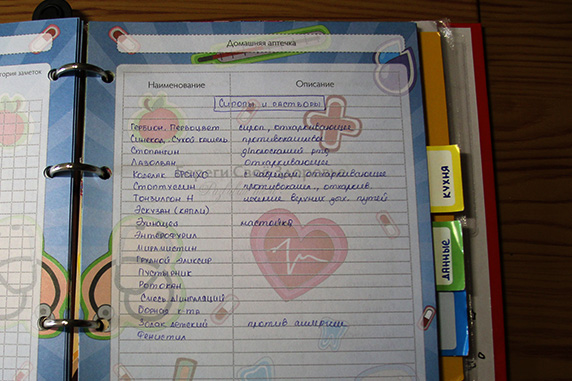 Домашняя аптечка
тория заметок
Наименование Описание
Сиропы и растворы
Гербион. Первоцвет сироп, отхаркивающее
Синекод. Сухой кашель противокашлевой
Стопангин д/полоскания рта
Лазолван отхаркивающее
Коделак БРОНХО с чабрецом, отхаркивающее
Стоптуссин противокашл., отхаркив.
Тонзилгон Н лечение верхних дых. путей
Эскузан (капли)
Эхинацея настойка
Энтерофурил
Мирамистин
Грудной эликсир
Пустырник
Ротокан
Смесь д/ингаляций
Борная к-та
Зодак детский против аллергии
Фенистил
КУХНЯ
ДАННЫЕ